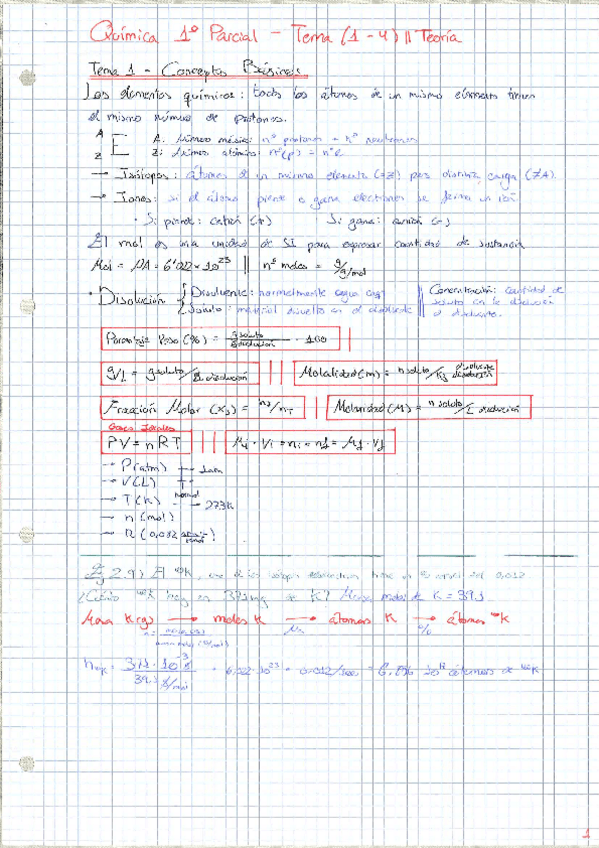 Química 1º Parcial - Tema (1-4) || Teoría
Tema 1 - Conceptos Básicos.
Los elementos químicos: todos los átomos de un mismo elemento tienen
el mismo número de protones.
A
E
Z
A: Número másico: nº protones + nº neutrones
Z: Número atómico: nº(p) = nº e
→ Isótopos: átomos de un mismo elemento (=Z) pero distinta carga (≠A).
→ Iones: si el átomo pierde o gana electrones se forma un ión
· Si pierde: catión (+) Si gana: anión (-)
El mol es una unidad de SI para expresar cantidad de sustancia
Mol = NA = 6'022 × 10²³ || nº moles = g/g/mol
· Disolución { Disolvente: normalmente agua
Soluto: material disuelto en el disolvente
Concentración: cantidad de
soluto en la disolución
o disolvente.
Porcentaje Peso (%) = g soluto / g disolución · 100
g/L = g soluto / L disolución || Molalidad (m) = n soluto / Kg disolvente
Fracción Molar (xᵢ) = nᵢ/nT || Molaridad (M) = n soluto / L disolución
Gases Ideales
PV = nRT ||| Mi · Vi = ni = nf = Mf · Vf
→ P(atm) → 1 atm
→ V(L)
→ T(K) normal → 273K
→ n (mol)
→ R (0,082 )
Ej 2.9) El ⁴⁰K, 0.012
¿Cuántos ⁴⁰K hay en 371mg de K? Masa molar de K = 39.1
Masa K(g) → moles K → átomos K → átomos ⁴⁰K
NA %
= 371 · 10⁻³ g / 39.1 g/mol · 6,022·10²³ · 0.012/100 = átomos de ⁴⁰K
1